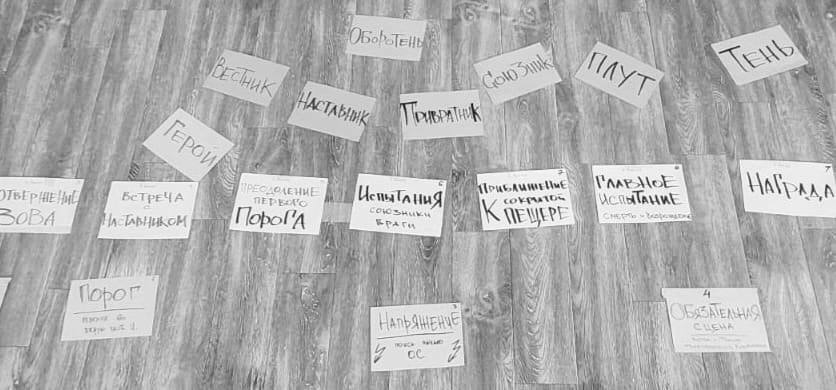 ОБОРОТЕНЬ
ВЕСТНИК
НАСТАВНИК
ПРИВРАТНИК
СОЮЗНИК
ПЛУТ
ТЕНЬ
ГЕРОЙ
ОТВЕРЖЕНИЕ
ЗОВА
ВСТРЕЧА
С
НАСТАВНИКОМ
ПРЕОДОЛЕНИЕ
ПЕРВОГО
ПОРОГА
6
ИСПЫТАНИЯ
СОЮЗНИКИ
ВРАГИ
7
ПРИБЛИЖЕНИЕ
К СОКРЫТОЙ
ПЕЩЕРЕ
ГЛАВНОЕ
ИСПЫТАНИЕ
СМЕРТЬ И ВОЗРОЖДЕНИЕ
НАГРАДА
ПОРОГ
3
НАПРЯЖЕНИЕ
ОС
4
ОБЯЗАТЕЛЬНАЯ
СЦЕНА